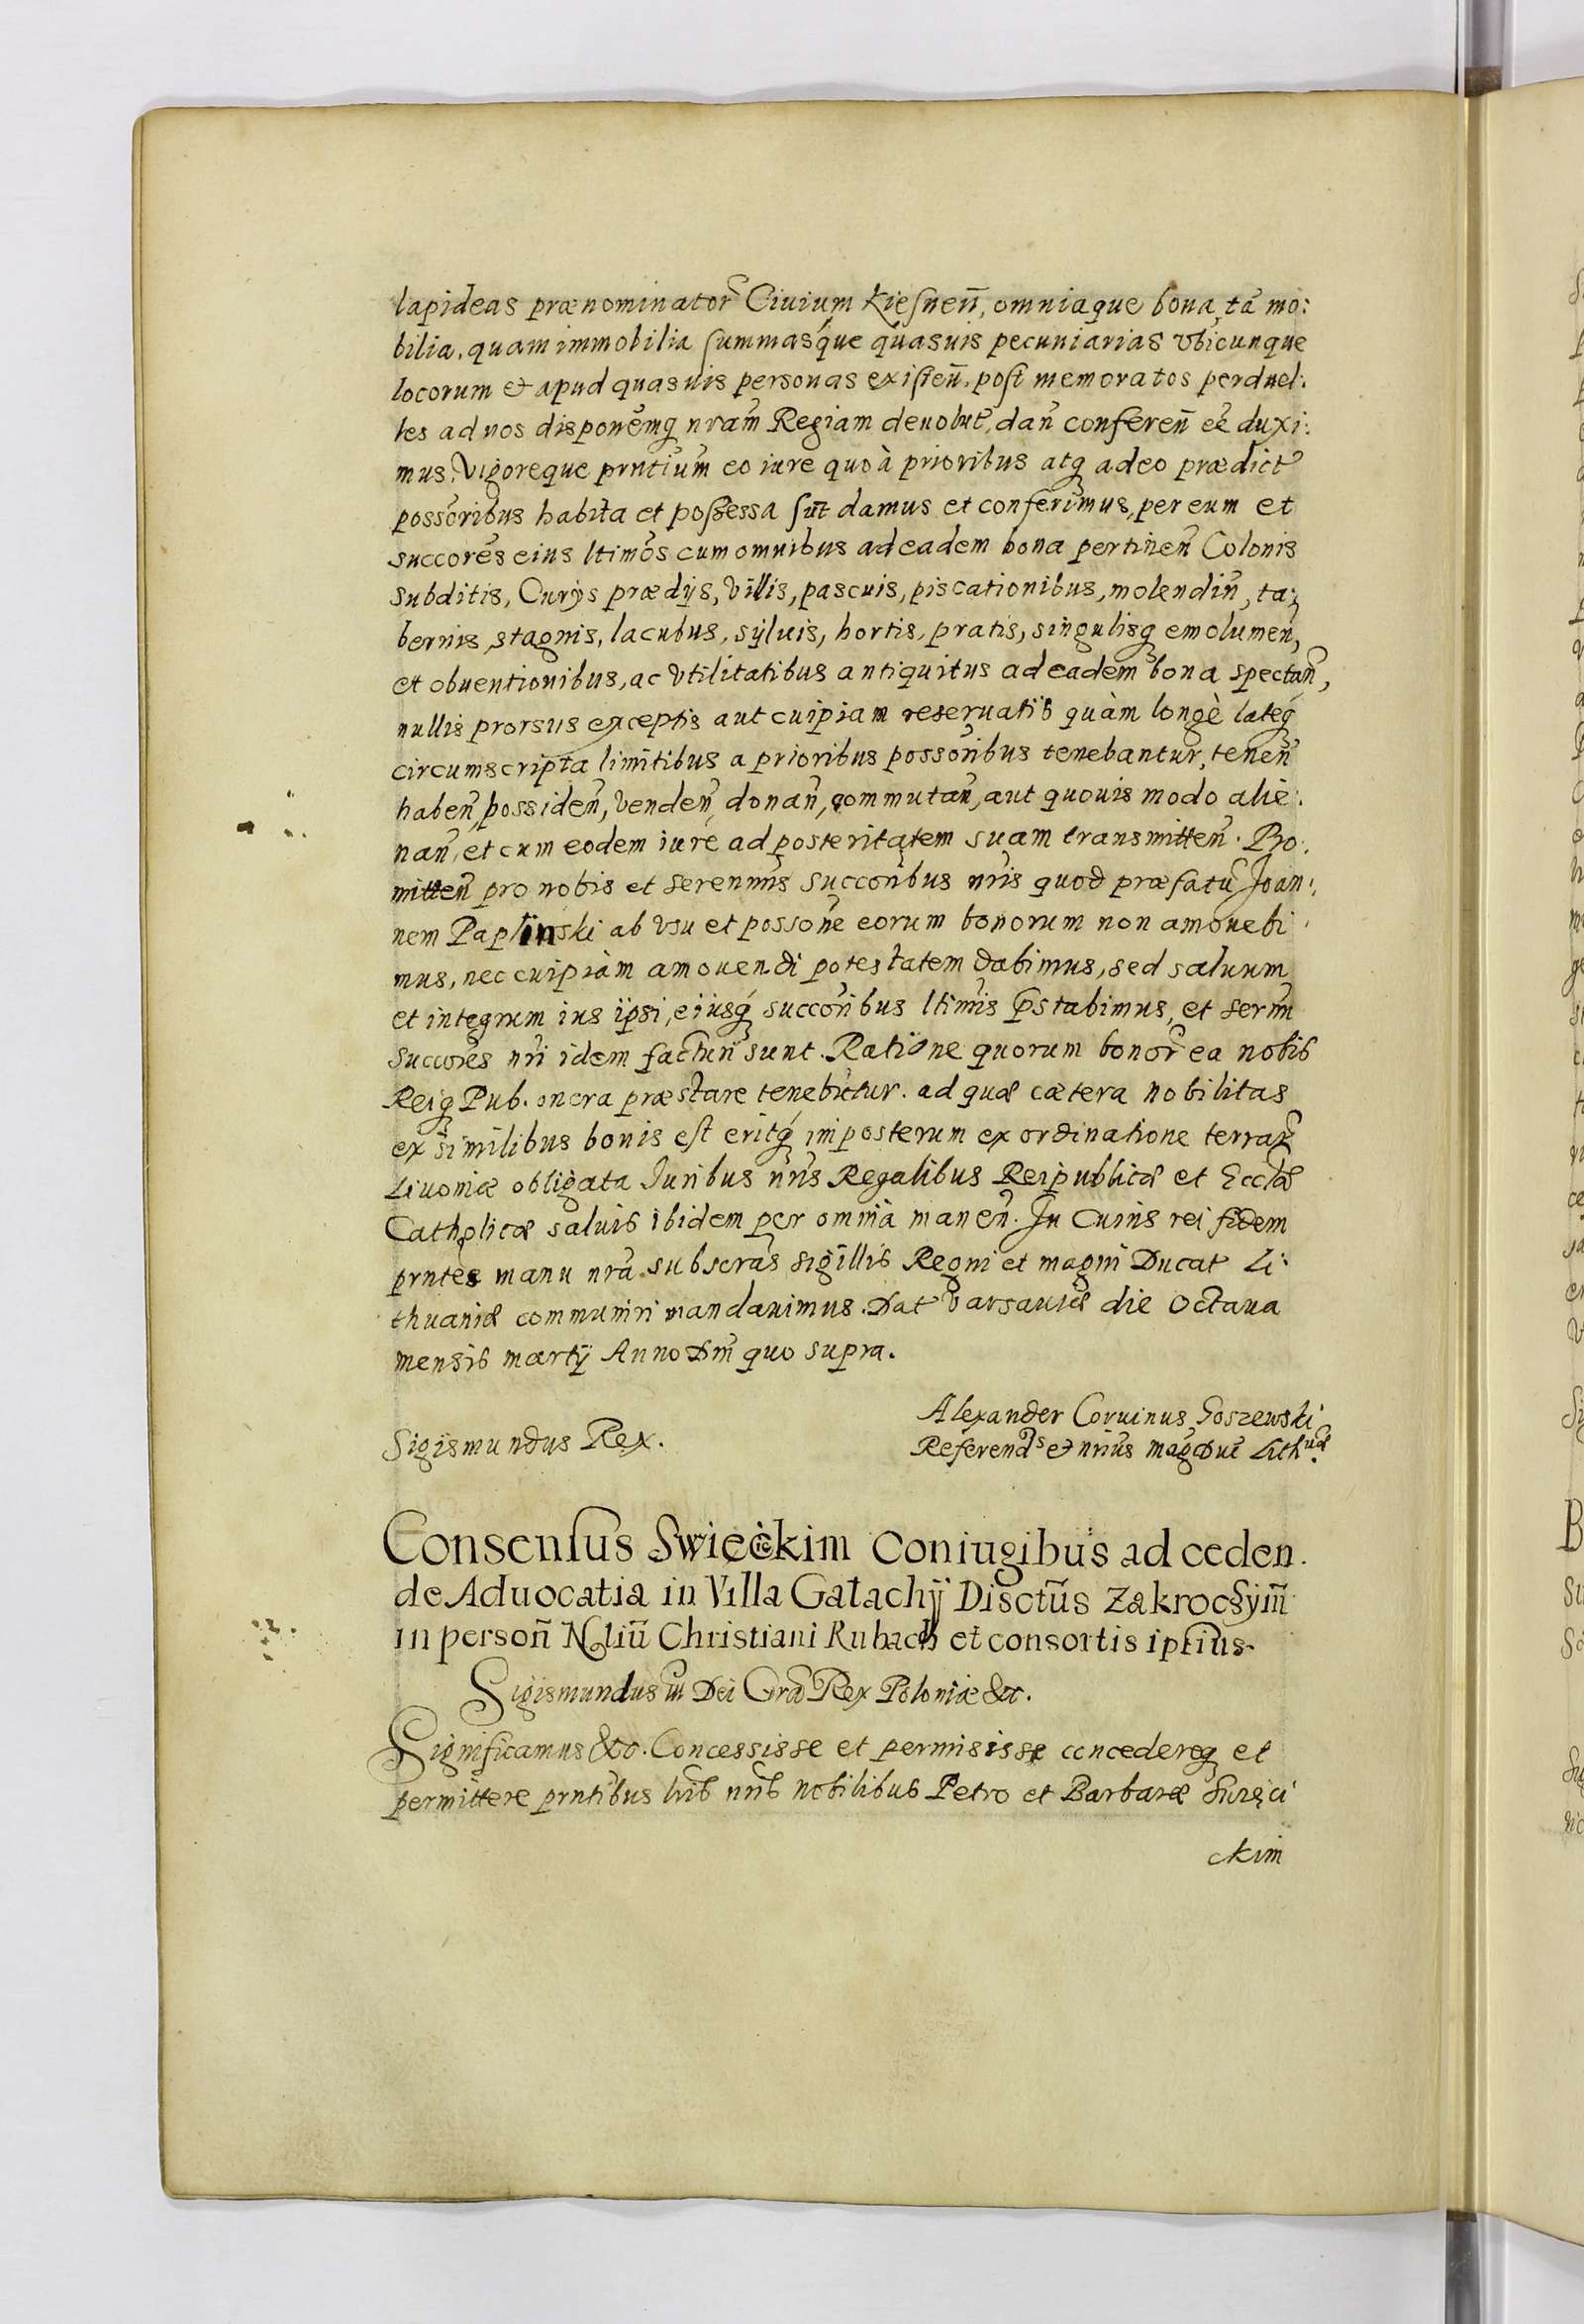 lapideas prænominator̃ Ciuium Kiesneñ, omniaque bona, tã mo:
bilia, quam immobilia summasq́ue quasuis pecuniarias vbicunque
locorum et apud quasuis personas existeñ, post memoratos perduel:
les ad nos dispoñemq̃ nram̃ Regiam deuolut̃, dañ confereñ eẽ duxi:
mus, Vigoreque prntiũm eo iure quo à prioribus atq̃ adeo prædict̃
possõribus habita et possessa sũt damus et conferimus, per eum et
succorẽs eius ltimõs cum omnibus ad eadem bona pertineñ Colonis
subditis, Curijs prædijs, Villis, pascuis, piscationibus, molendiñ, ta:
bernis, stagnis, lacubus, syluis, hortis, pratis, singulisq̃ emolumeñ,
et obuentionibus, ac vtilitatibus antiquitus ad eadem bona spectañ,
nullis prorsus exceptis aut cuipiam reseruatis quàm longè lateq́
circumscripta limitibus a prioribus possoribus tenebantur, teneñ
habeñ, possideñ, vendeñ, donañ, commutañ, aut quouis modo alie:
nañ, et cum eodem iure ad posteritatem suam transmitteñ. Pro:
mitteñ pro nobis et serenmis̃ succoribus nris̃ quod præfatũ Joan:
nem Paplinski ab vsu et possonẽ eorum bonorum non amouebi
mus, nec cuipiàm amouendi potestatem dabimus, sed saluum
et integrum ius ipsi, eiusq́ succoribus ltimis̃ p̃stabimus, et serm̃i
succores nri idem facturi sunt. Ratione quorum bonor̃ ea nobis
Reiq̃ Pub. onera præstare tenebitur. ad quæ cætera nobilitas
ex similibus bonis est eritq́ imposterum ex ordinatione terrar̃
Liuoniæ obligata Iuribus nris̃ Regalibus Reipublicæ et Ecclæ
Catholicæ saluis ibidem per omnia maneñ. In Cuius rei fidem
prntes manu nrã subscras̃ sigillis Regni et magni Ducat̃ Li:
thuaniæ communiri mandauimus. Dat̃ Varsauiæ die Octaua
mensis martij Anno Dm̃ quo supra.
Alexander Coruinus Goszewski
Sigismundus Rex.
Referendˢ et nrius mag Duc̃ Lithuæ.
Consensus Swiecickim Coniugibus ad ceden.
de Aduocatia in Villa Gałachÿ Disctũs Zakroczym̃
in persoñ Nliũ Christiani Rubach et consortis ipsius.
Sigismundus iii Dei Grã Rex Poloniæ &c.
Significamus &c. Concessisse et permisisse concedereq̃ et
permittere prntibus lris̃ nris̃ nobilibus Petro et Barbaræ Swięci
ckim